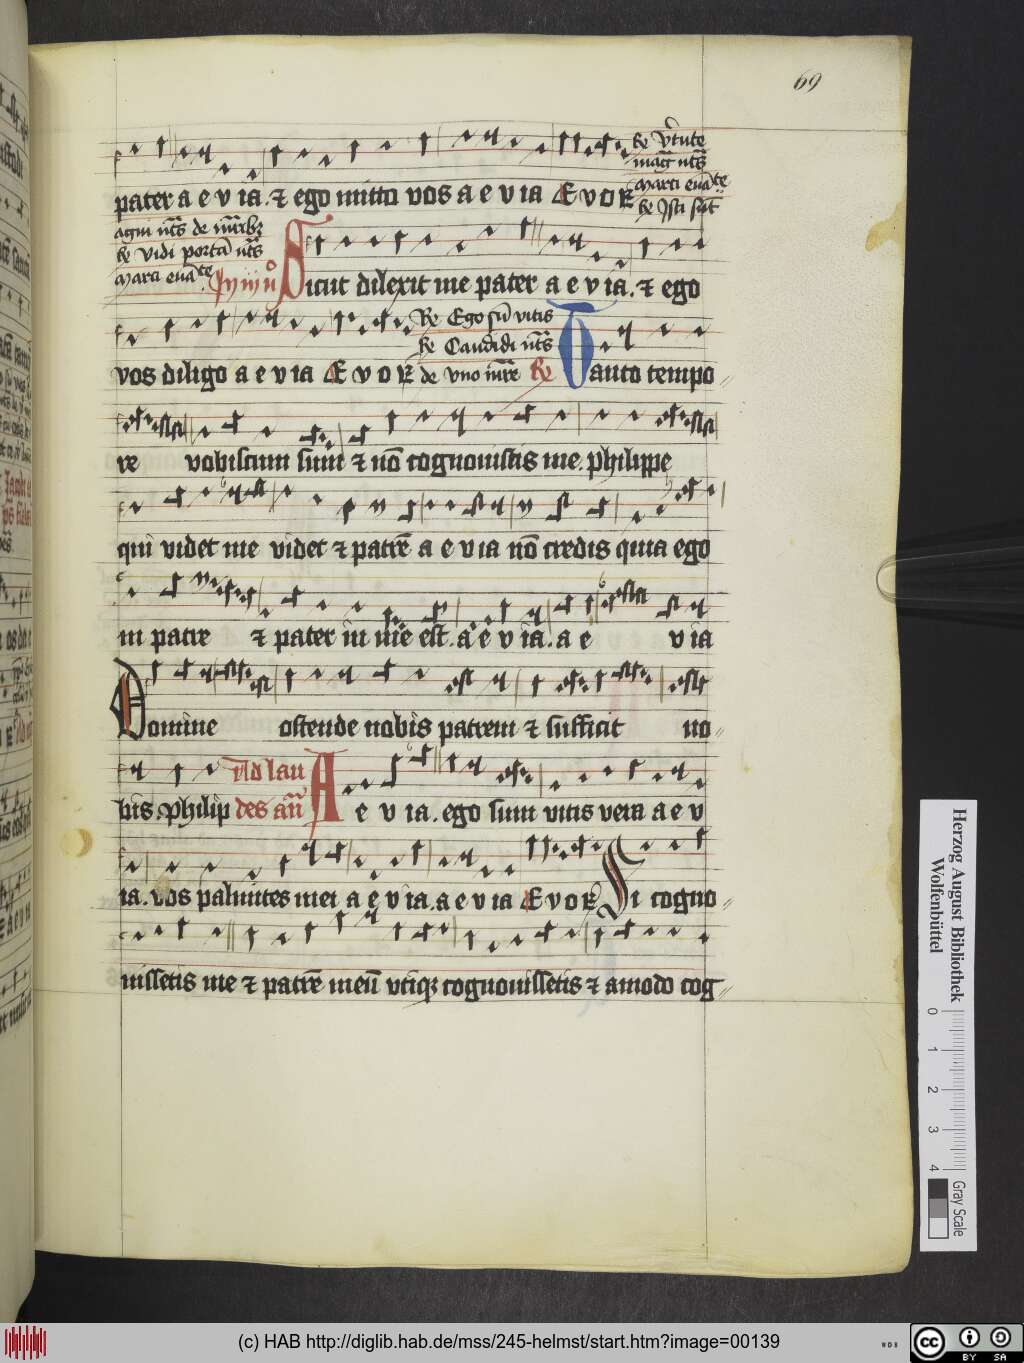 69
pater a e v ia. ⁊ ego mitto vos a e v ia Æ v o E
Re Vˀtute
mag̃ nt̃s
Marci eua te
Re Isti sũt
agni nt̃s de
Re vidi portã nt̃s
marci eua te
Sicut dilexit me pater a e v ia. ⁊ ego
vos diligo a e v ia Æ v o E
Re Ego sũ vitis
Re Candidi nt̃s
de vno mr̃e Re Tanto tempo
re vobiscum sum ⁊ nõ cognouistis me. philippe
qui videt me videt ⁊ patrẽ a e v ia nõ credis quia ego
in patre ⁊ pater in me est. a e v ia. a e v ia
Domine ostende nobis patrem ⁊ sufficit no
bis. philip Ad lau
des añ A e v ia. ego sum vitis vera a e v
ia. vos palmites mei a e v ia. a e v ia Æ v o E Si cogno
uissetis me ⁊ patrẽ meũ vtiqꝫ cognouissetis ⁊ amodo cog
Herzog August Bibliothek
Wolfenbüttel
0 1 2 3 4
Gray Scale
(c) HAB http://diglib.hab.de/mss/245-helmst/start.htm?image=00139
WDB
cc BY SA